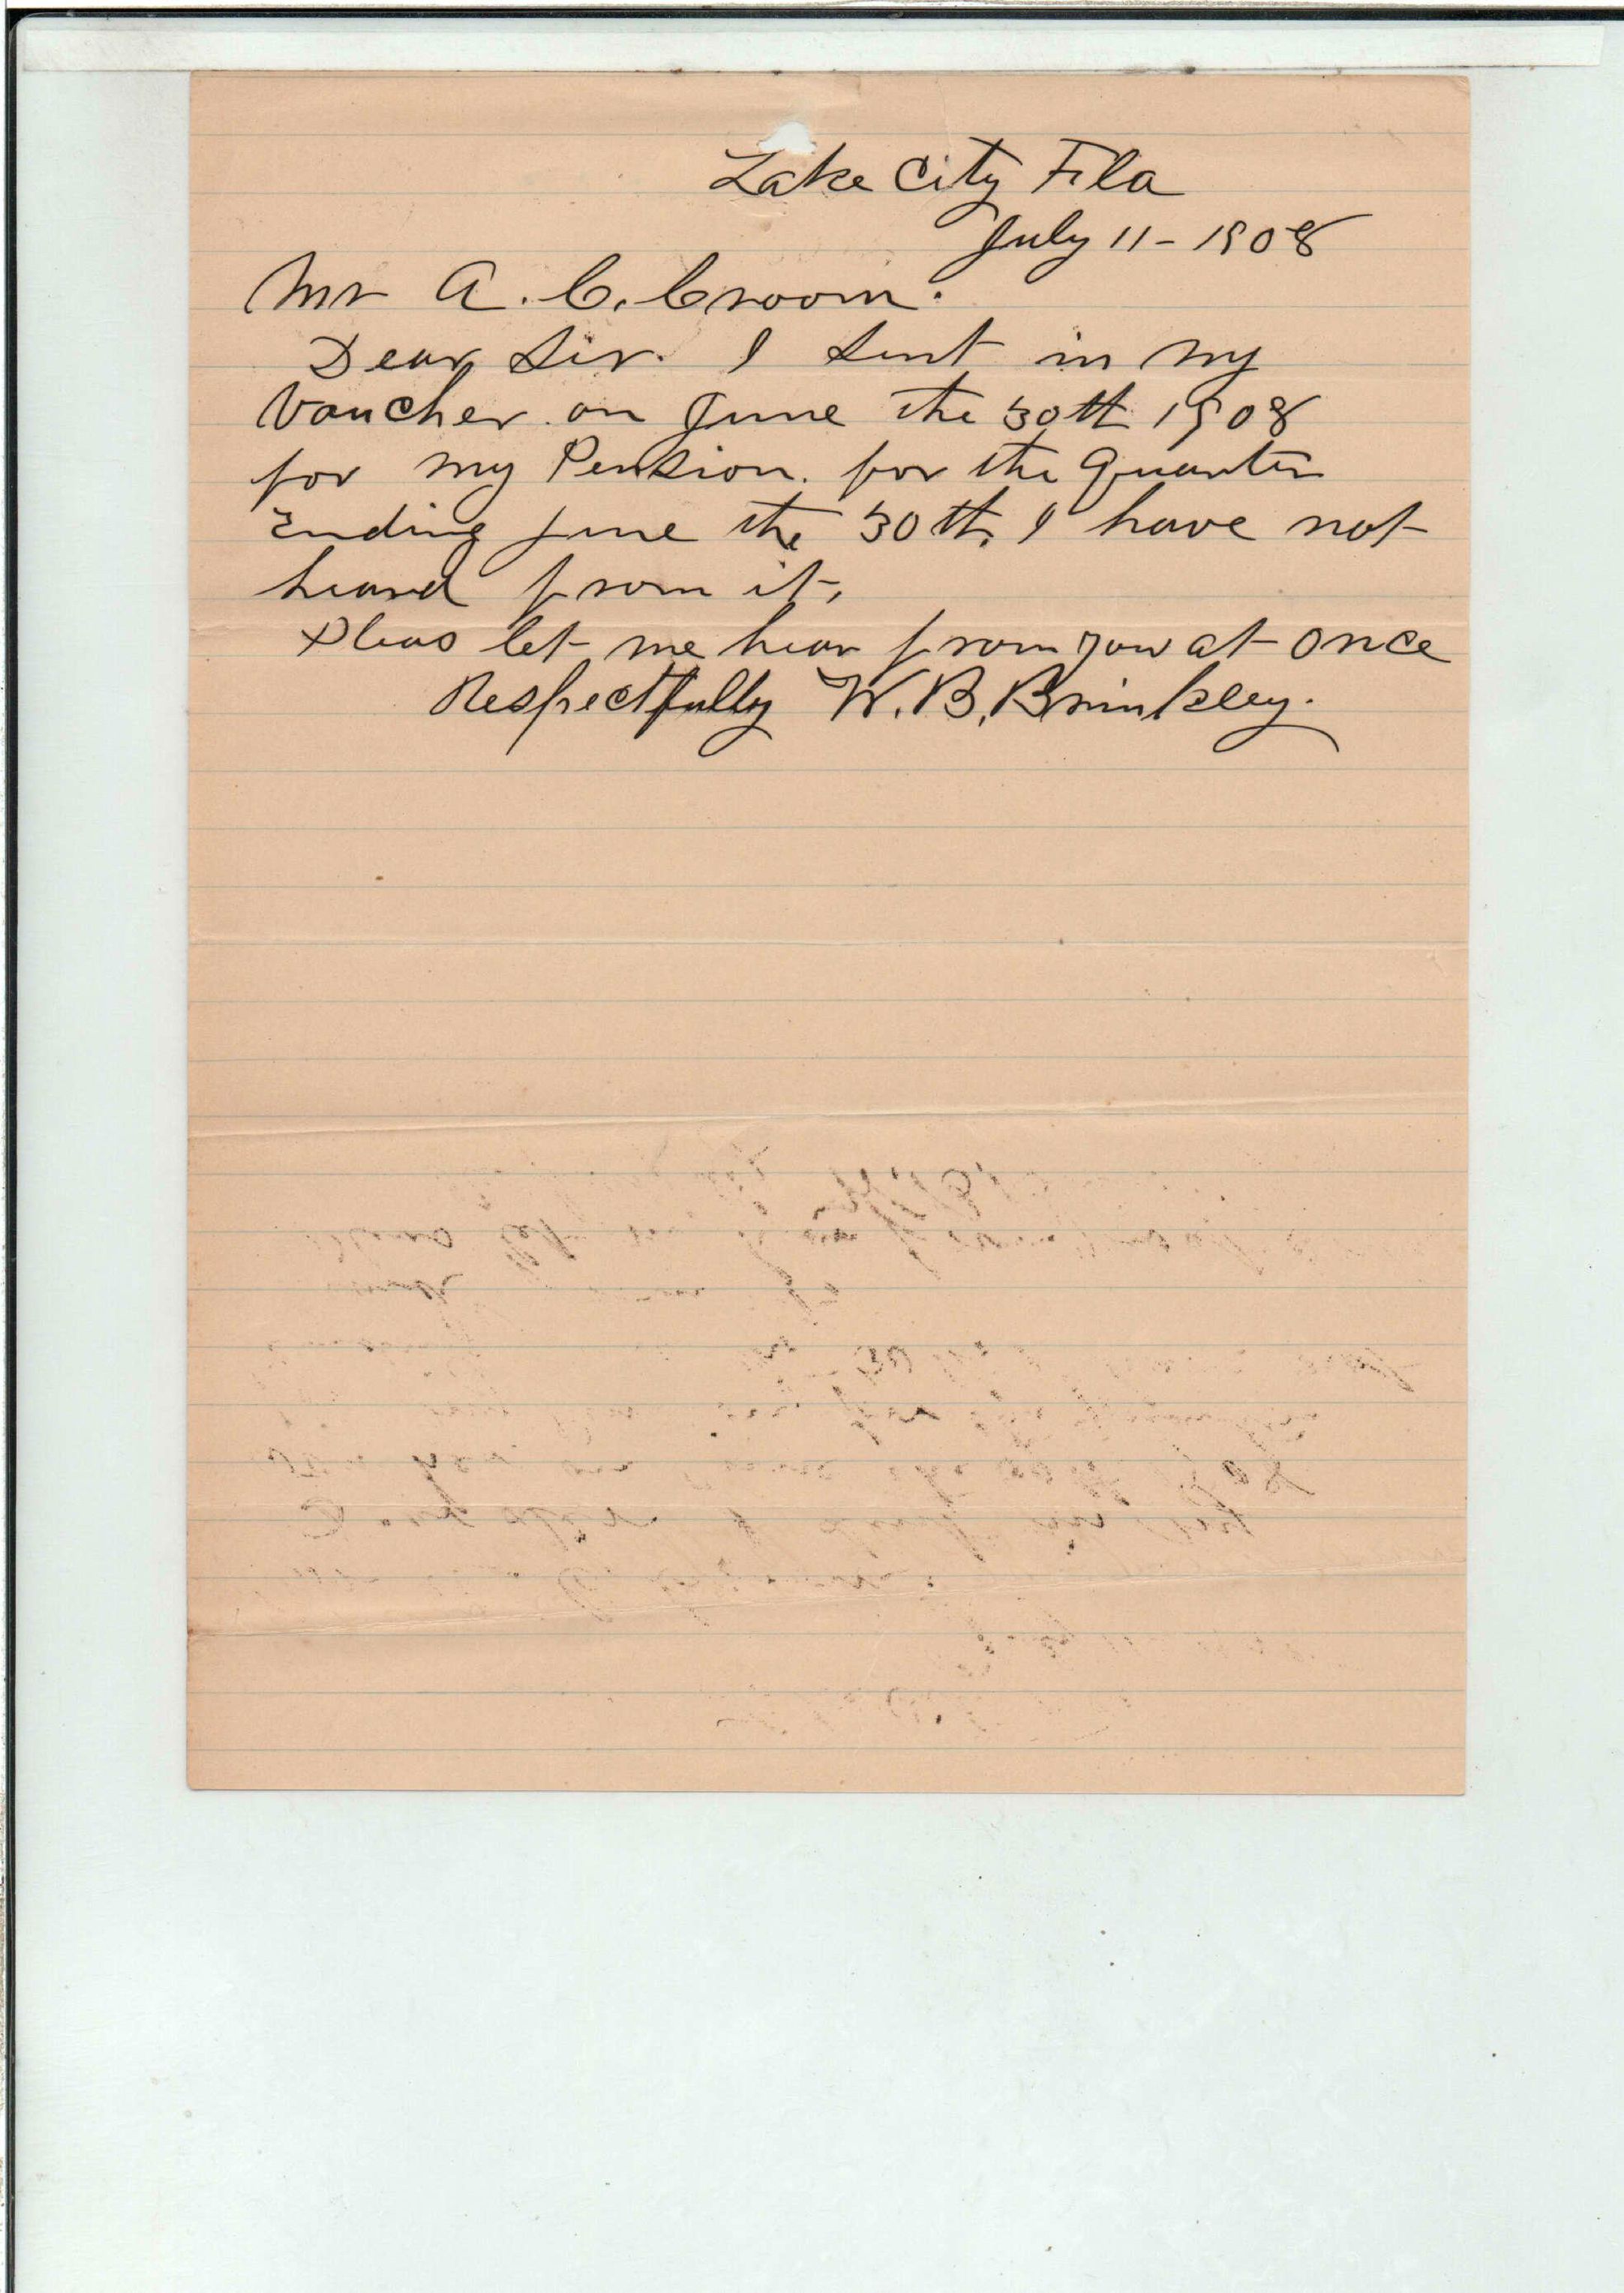 Lake City Fla
July 11 - 1908
Mr A. C. Croom.
Dear Sir. I sent in my
Voucher on June the 30th 1908
for my Pension. for the Quarter
Ending June the 30th. I have not
heard from it,
Pleas let me hear from you at once
Respectfully W. B. Brinkley.